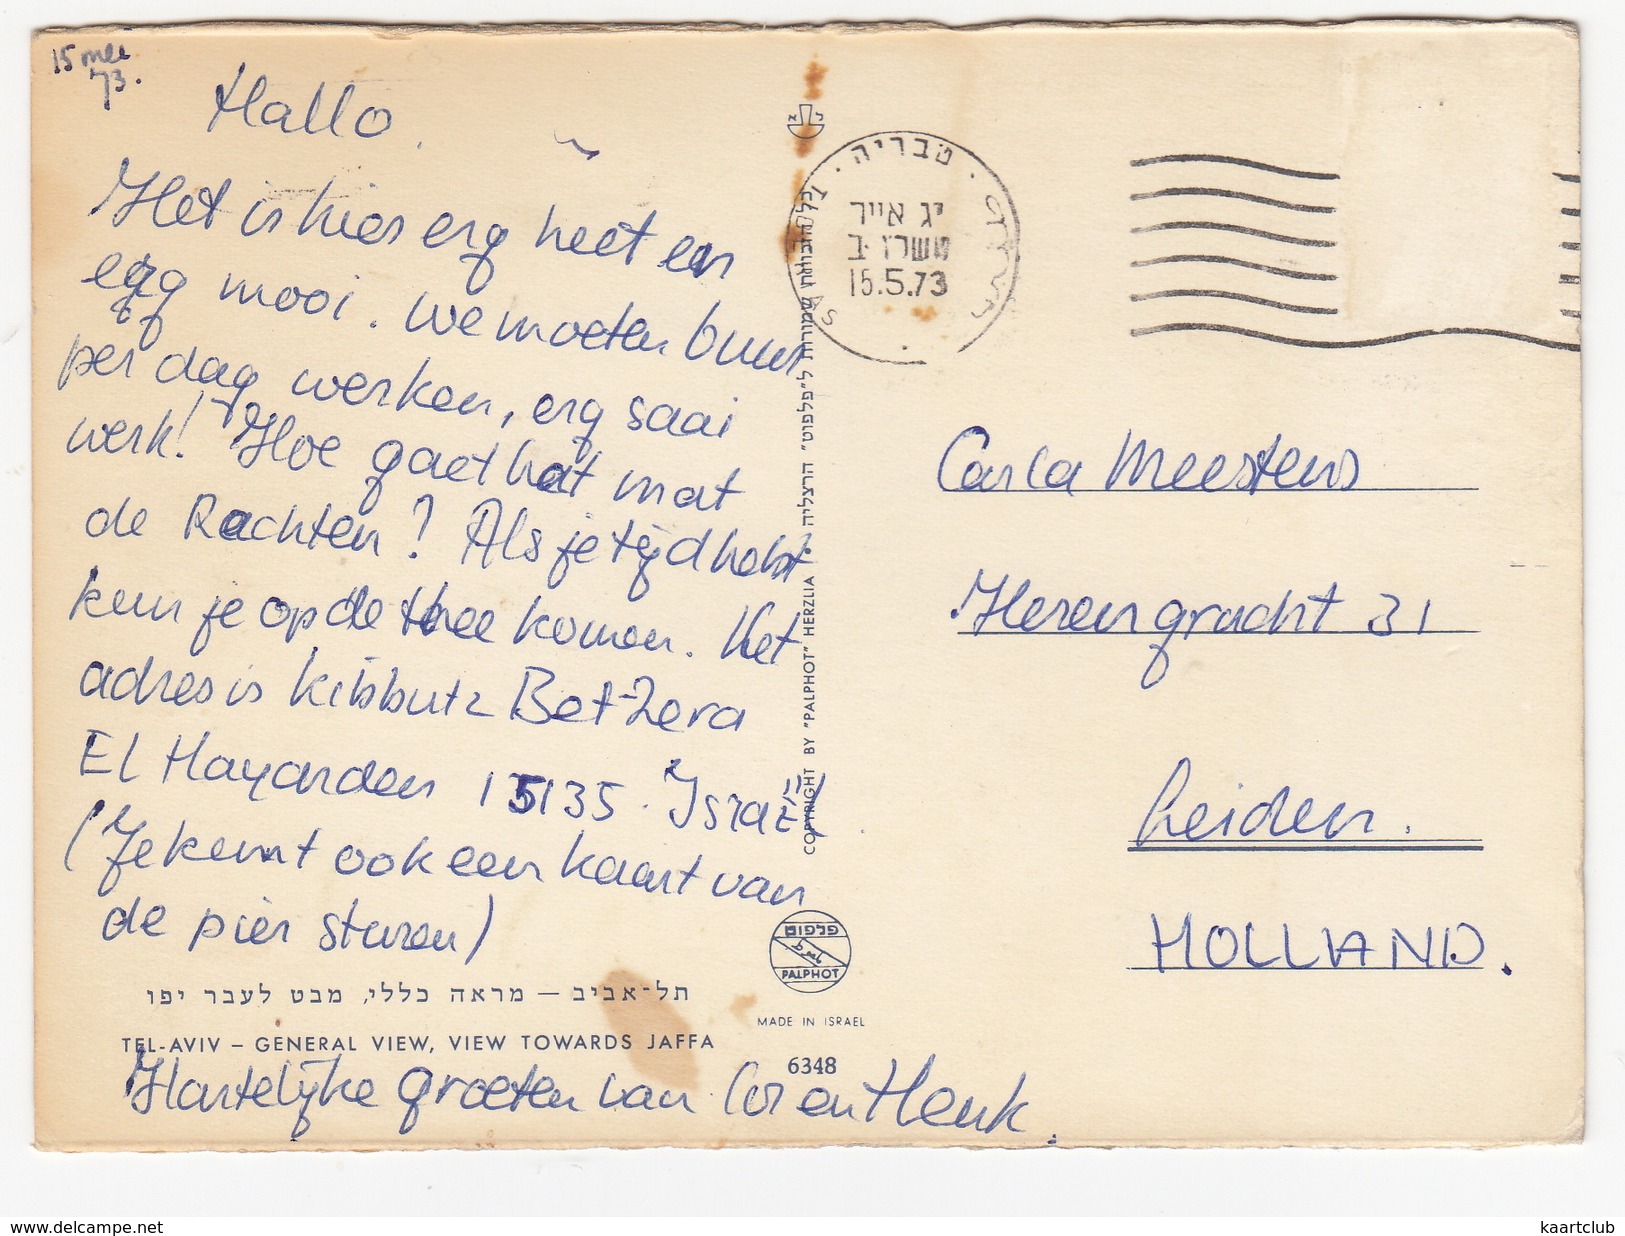 15 mei
73.
Hallo.
Het is hier erg heet en
erg mooi. We moeten 6 uur
per dag werken, erg saai
werk! Hoe gaet het mat
de Rechten? Als je tijd hebt
kun je op de thee komen. Het
adres is kibbutz Bet-Zera
El Hayarden 15135. Israël.
(Je kunt ook een kaart van
de pier sturen)
תל-אביב — מראה כללי, מבט לעבר יפו
TEL-AVIV – GENERAL VIEW, VIEW TOWARDS JAFFA
Hartelijke groeten van Cor en Henk.
כל הזכויות שמורות ל"פלפוט" הרצליה
COPYRIGHT BY "PALPHOT" HERZLIA
פלפוט
PALPHOT
MADE IN ISRAEL
6348
טבריה
יג אייר
תשל"ג
15.5.73
Carla Meesters
Herengracht 31
Leiden.
HOLLAND.
www.delcampe.net
kaartclub